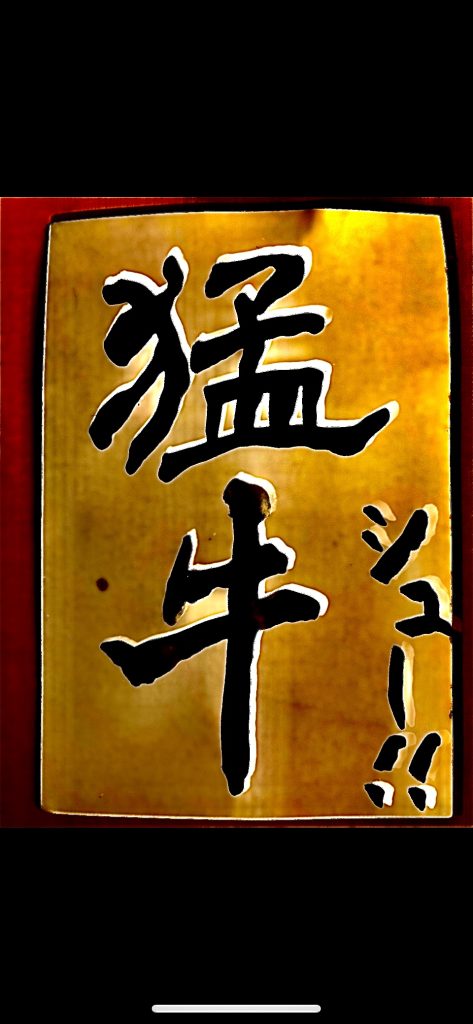 猛牛
シュー!!